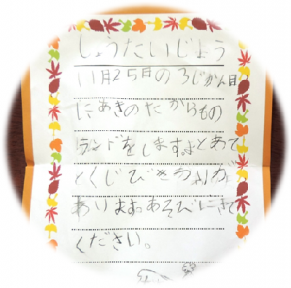 しょうたいじょう
11月25日の3じかん目
にあきのたからもの
ランドをしますまとあて
とくじびきちかが
ありますあそびにきて
ください。